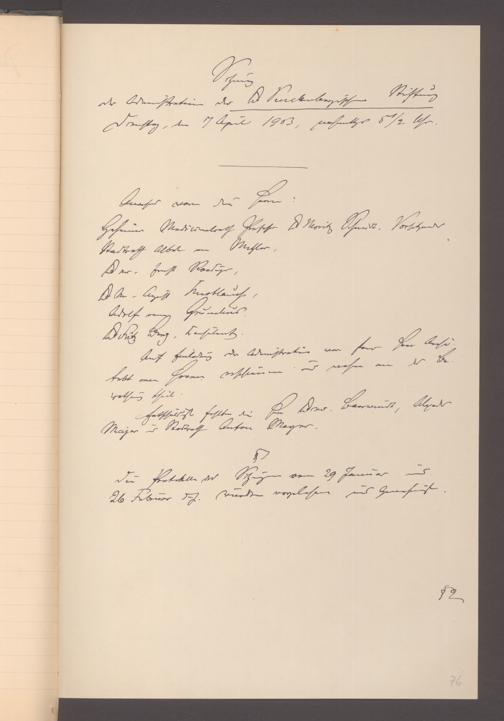 Sitzung
der Administration der Dr. Senckenbergischen Stiftung
Dienstag, den 7 April 1903, nachmittgs 5 1/2 Uhr.
Anwesend waren die Herren:
Geheimer Medicinalrath Professor Dr Moritz Schmidt, Vorsitzender
Stadtrath Albert von Metzler,
Dr med. Ernst Roediger,
Dr. August Knoblauch,
Adolf von Grunelius,
Dr Fritz Berg, Consulent.
Auf Einladung der Administration war Herr
erschienen und nahm an der Be-
rathung theil.
Entschuldigt fehlten die Herren Dr med. Alexander
Majer und Stadtrath Anton Meyer.
§ 1
Die Protokolle der Sitzungen vom 29 Januar und
26 Februar d.J. wurden vorgelesen und genehmigt.
§ 2
76